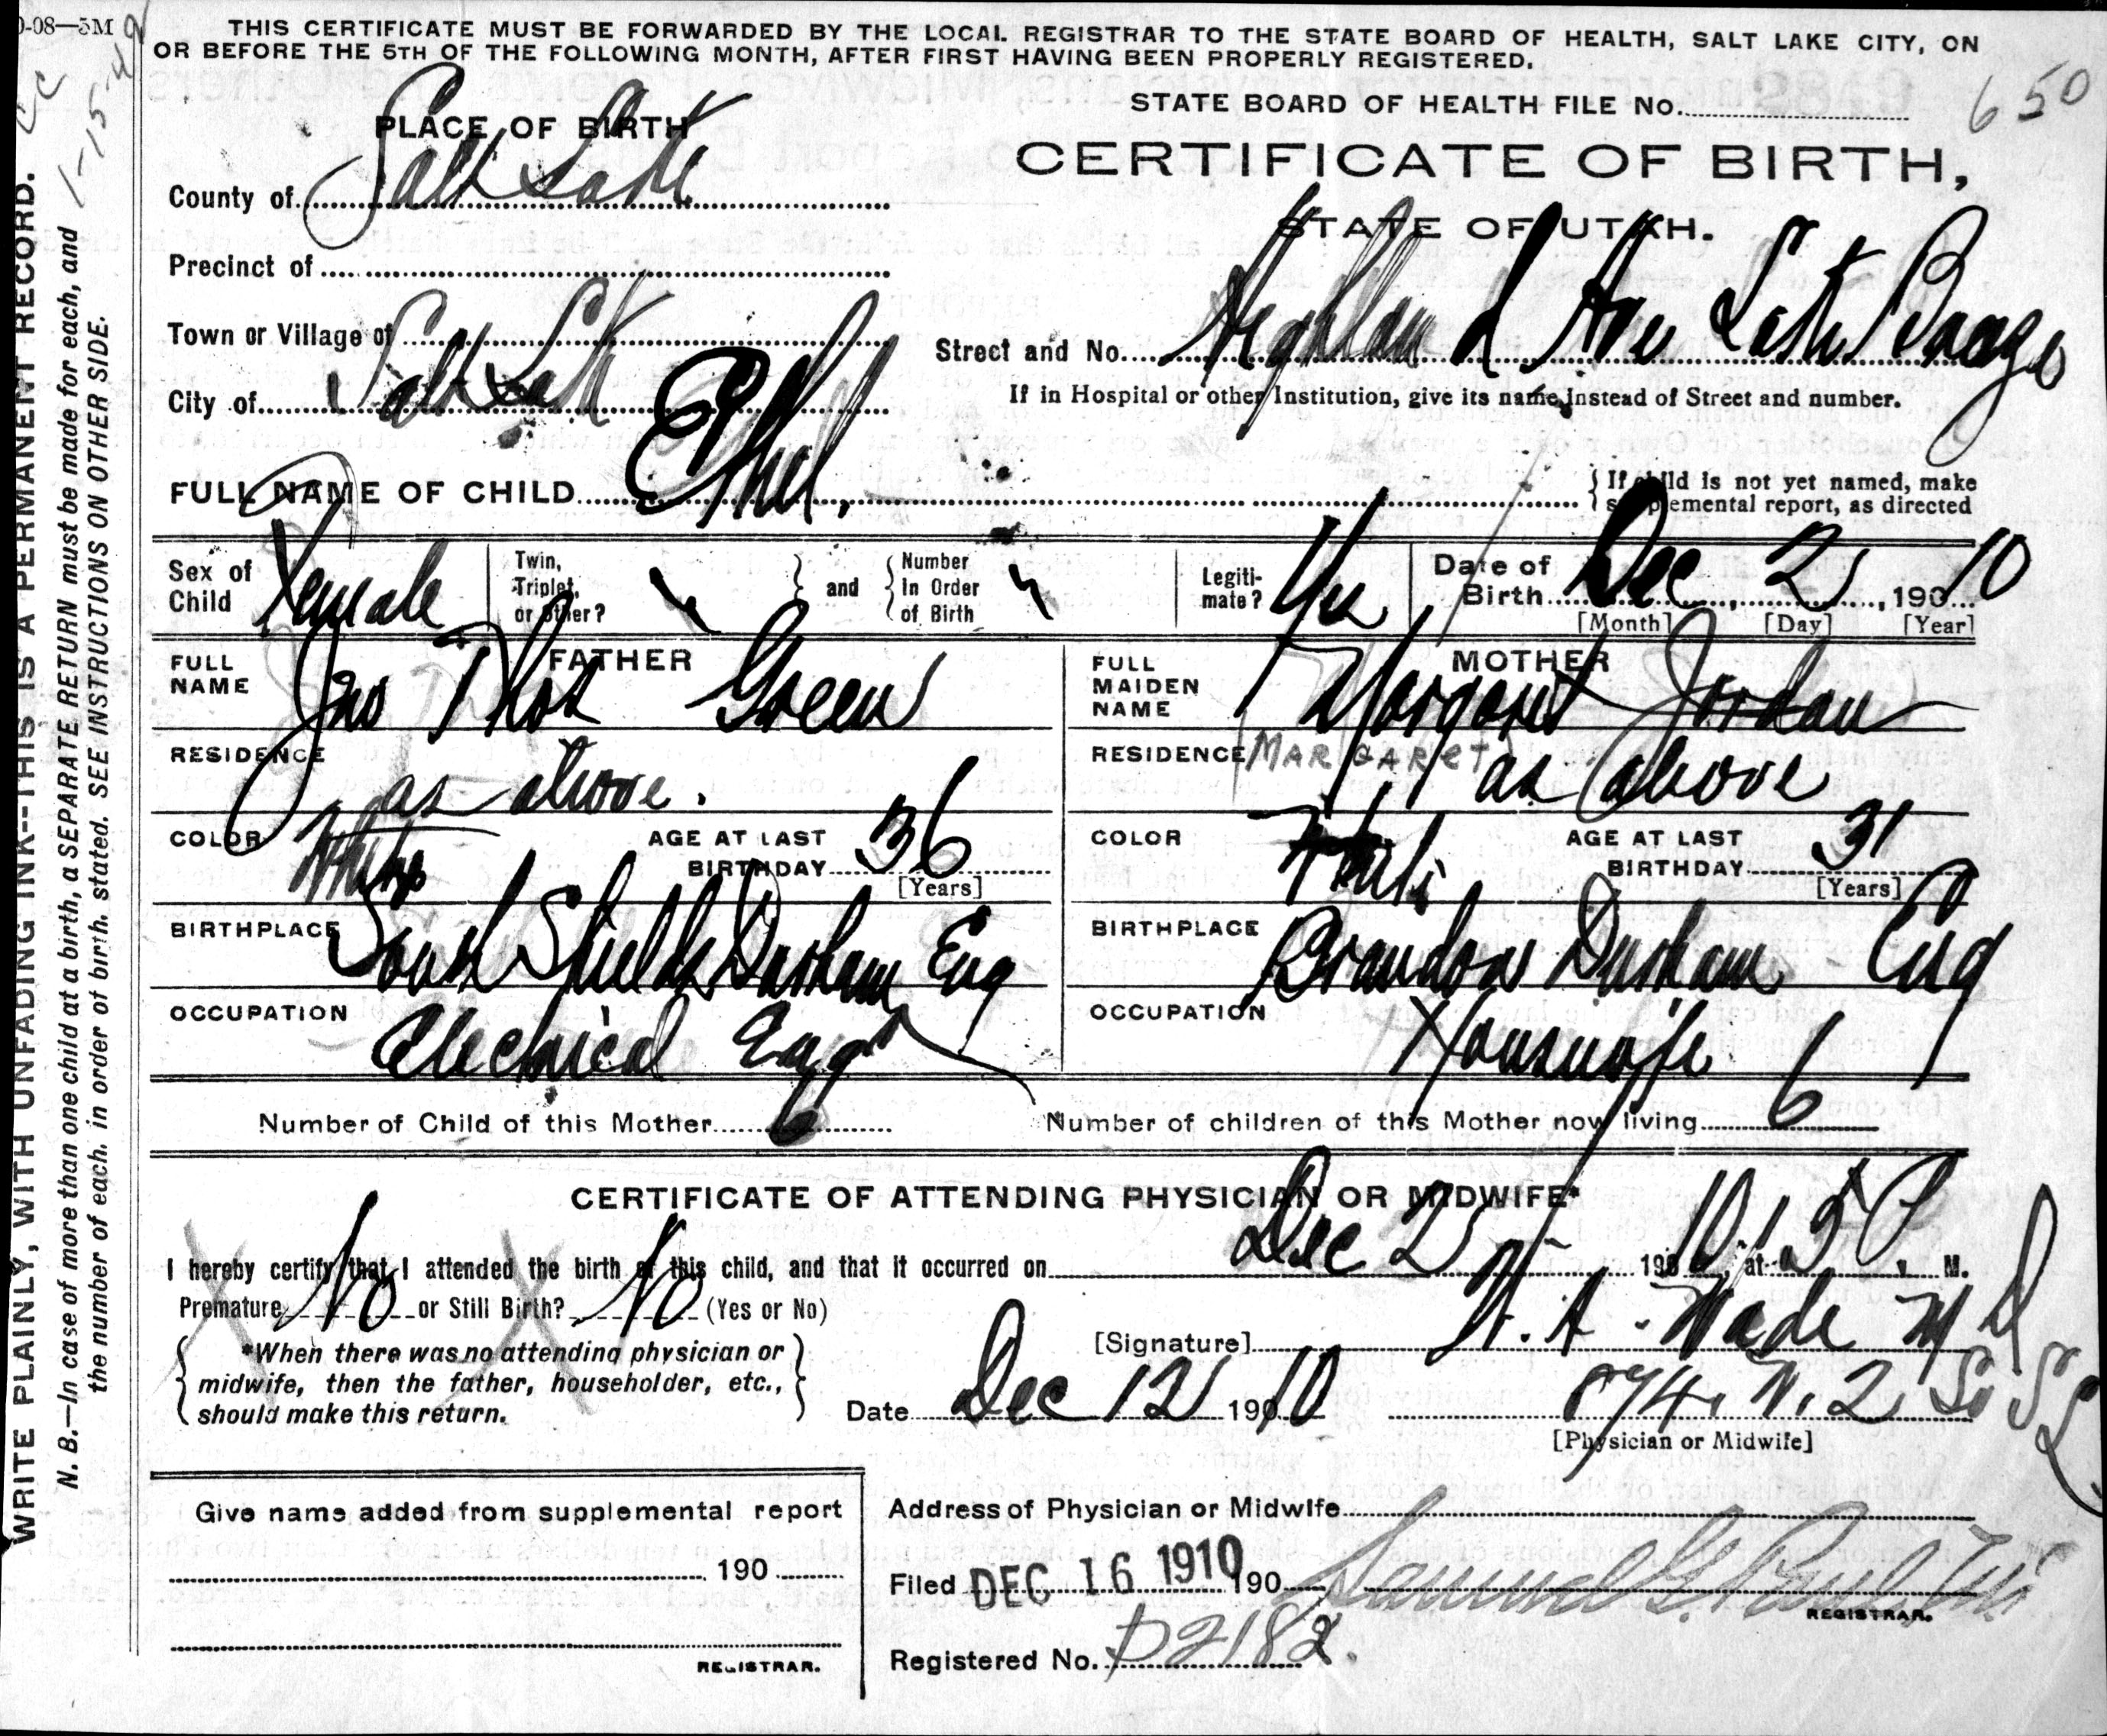 0-08—5M
THIS CERTIFICATE MUST BE FORWARDED BY THE LOCAL REGISTRAR TO THE STATE BOARD OF HEALTH, SALT LAKE CITY, ON
OR BEFORE THE 5TH OF THE FOLLOWING MONTH, AFTER FIRST HAVING BEEN PROPERLY REGISTERED.
STATE BOARD OF HEALTH FILE No. 650
CERTIFICATE OF BIRTH,
STATE OF UTAH.
PLACE OF BIRTH
County of Salt Lake
Precinct of
Town or Village of
City of Salt Lake
Street and No. Highland Ave
If in Hospital or other Institution, give its name, instead of Street and number.
FULL NAME OF CHILD Ethel.
If child is not yet named, make
supplemental report, as directed
Sex of Child Female
Twin, Triplet, or other?
and
Number In Order of Birth
Legitimate? Yes
Date of Birth Dec 2, 1910
[Month] [Day] [Year]
FATHER
FULL NAME Jas Thos Green
RESIDENCE as above.
COLOR White
AGE AT LAST BIRTHDAY 36
[Years]
BIRTHPLACE South Shields Durham Eng
OCCUPATION Electrical Engr
MOTHER
FULL MAIDEN NAME Margaret Jordan
MARGARET
RESIDENCE as above
COLOR White
AGE AT LAST BIRTHDAY 31
[Years]
BIRTHPLACE Brandon Durham Eng
OCCUPATION Housewife
Number of Child of this Mother 6
Number of children of this Mother now living 6
CERTIFICATE OF ATTENDING PHYSICIAN OR MIDWIFE*
I hereby certify that I attended the birth of this child, and that it occurred on Dec 2 1910, at M.
Premature No or Still Birth? No (Yes or No)
*When there was no attending physician or
midwife, then the father, householder, etc.,
should make this return.
[Signature] Wade MD
Date Dec 12 1910
[Physician or Midwife]
Give name added from supplemental report
190
REGISTRAR.
Address of Physician or Midwife
Filed DEC 16 1910 190
REGISTRAR.
Registered No. D2182.
WRITE PLAINLY, WITH UNFADING INK--THIS IS A PERMANENT RECORD.
N. B.—In case of more than one child at a birth, a SEPARATE RETURN must be made for each, and
the number of each, in order of birth, stated. SEE INSTRUCTIONS ON OTHER SIDE.